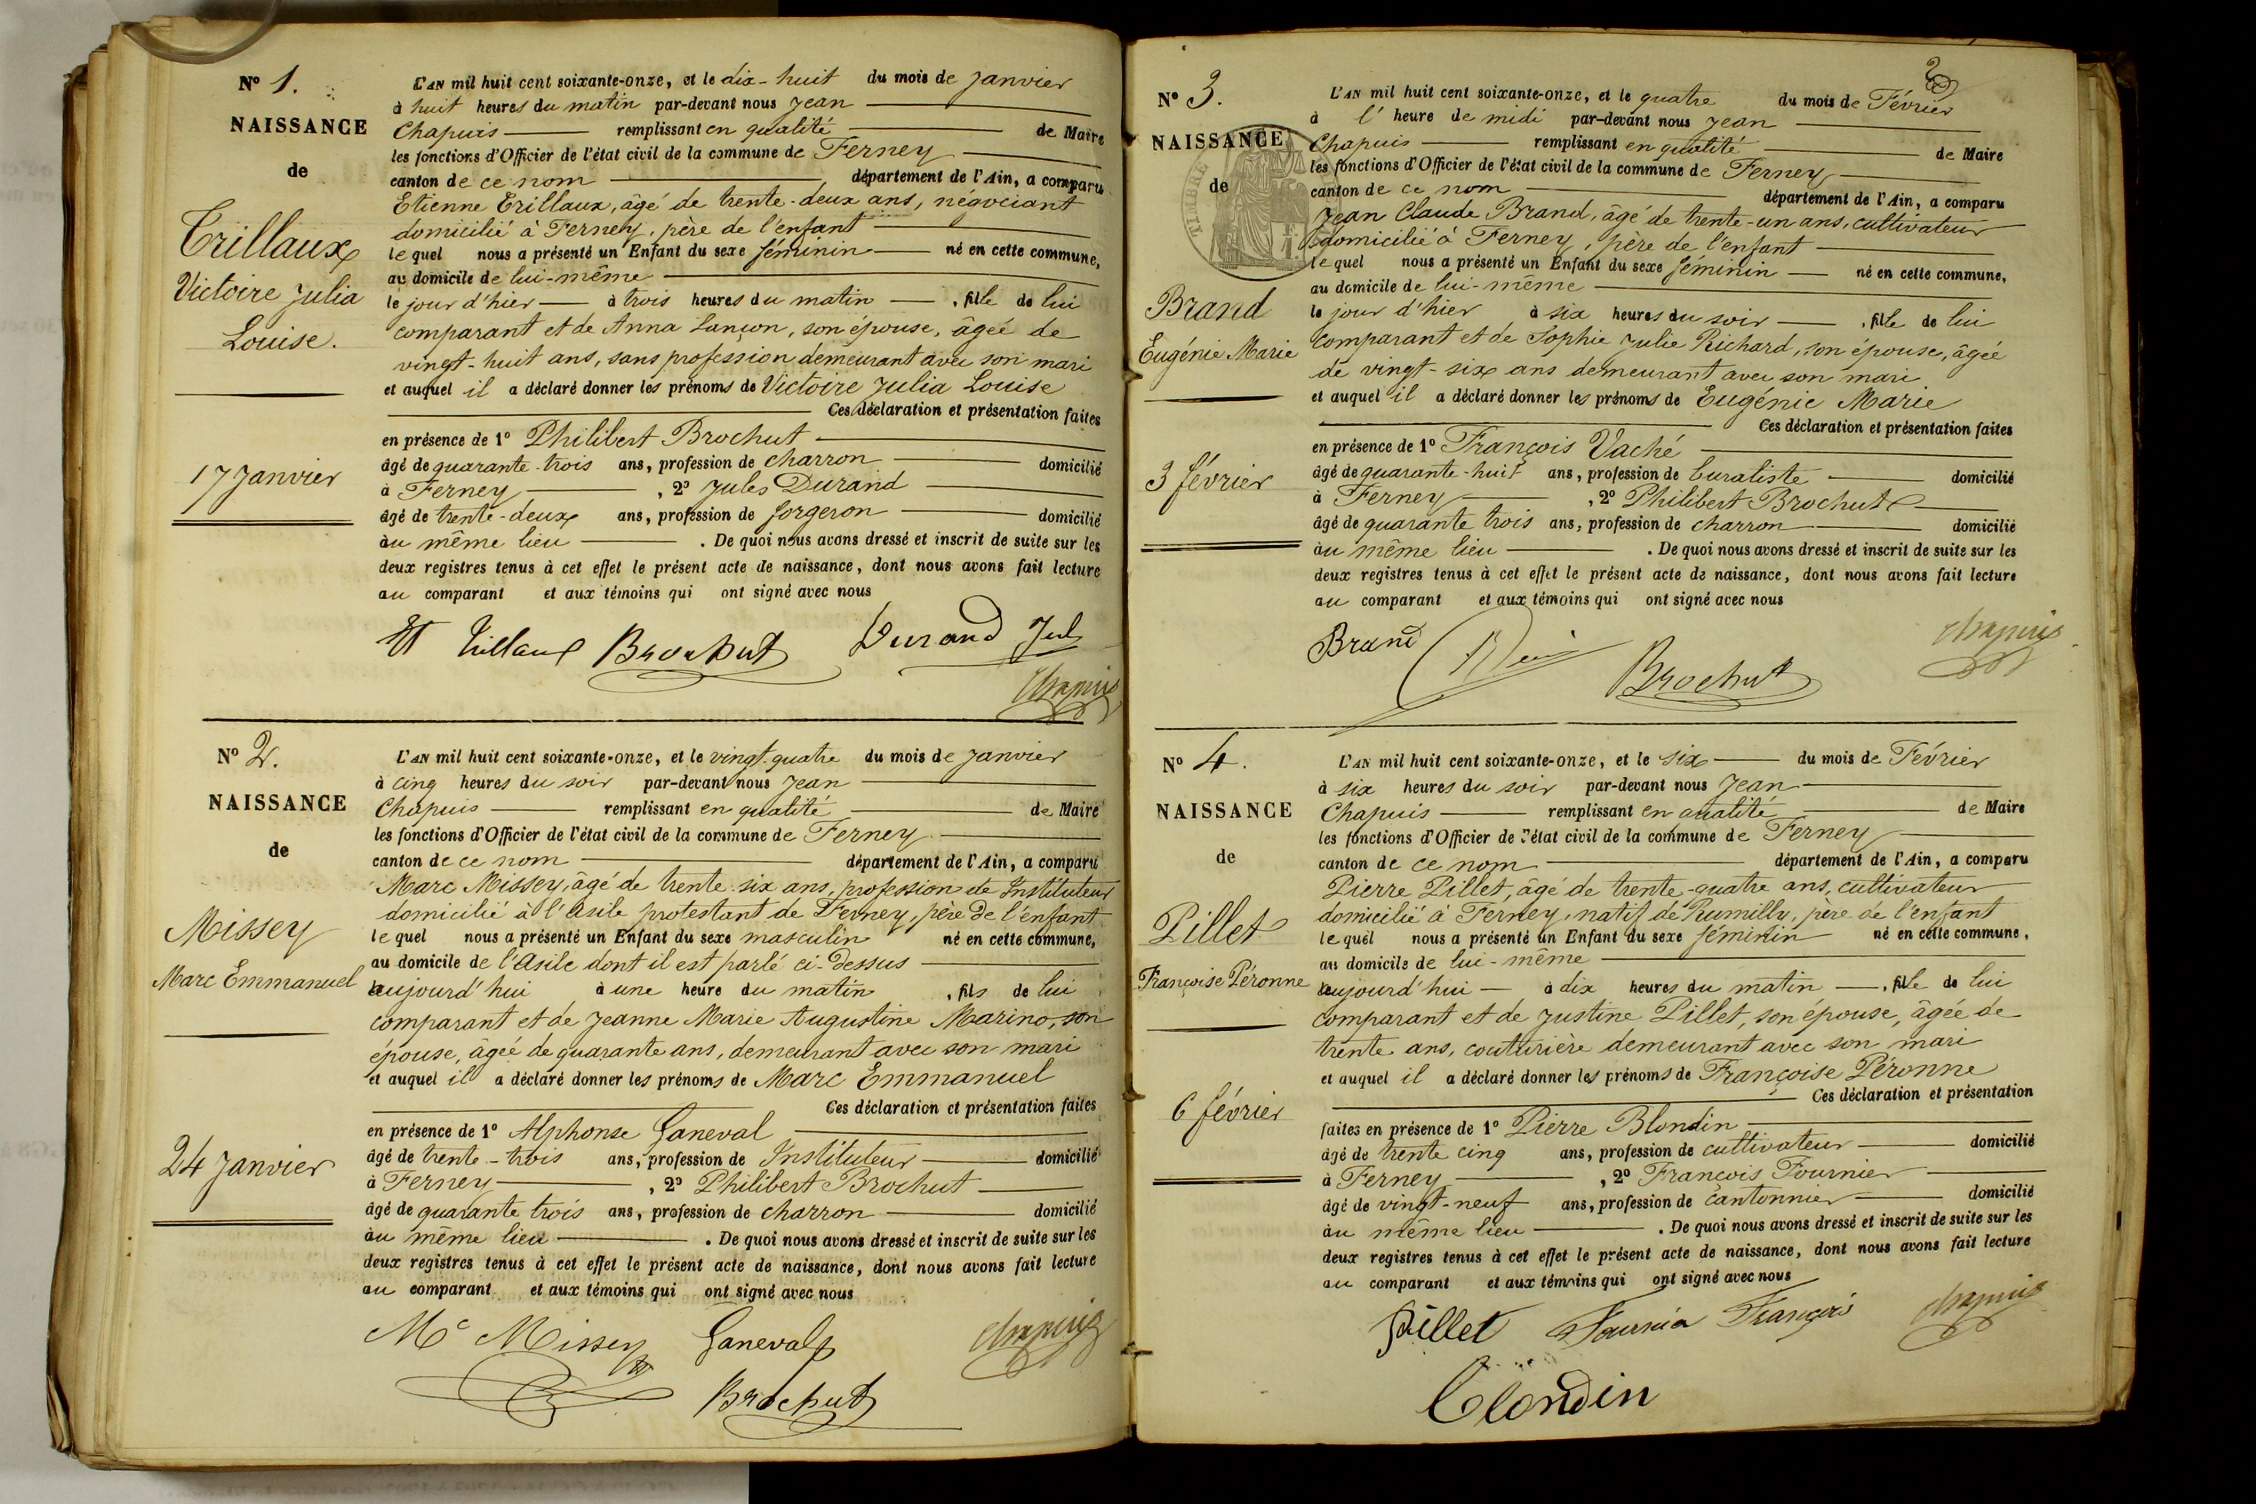 N° 1.
NAISSANCE
de
Trillaux
Victoire Julia
Louise.
17 Janvier
L'AN mil huit cent soixante-onze, et le dix-huit du mois de Janvier
à huit heures du matin par-devant nous Jean
Chapuis remplissant en qualité de Maire
les fonctions d'Officier de l'état civil de la commune de Ferney
canton de ce nom département de l'Ain, a comparu
Etienne Trillaux, âgé de trente-deux ans, négociant
domicilié à Ferney, père de l'enfant
lequel nous a présenté un Enfant du sexe féminin né en cette commune,
au domicile de lui-même
le jour d'hier à trois heures du matin , fille de lui
comparant et de Anna Lançon, son épouse, âgée de
vingt-huit ans, sans profession demeurant avec son mari
et auquel il a déclaré donner les prénoms de Victoire Julia Louise
Ces déclaration et présentation faites
en présence de 1° Philibert Brochut
âgé de quarante-trois ans, profession de charron domicilié
à Ferney , 2° Jules Durand
âgé de trente-deux ans, profession de forgeron domicilié
au même lieu . De quoi nous avons dressé et inscrit de suite sur les
deux registres tenus à cet effet le présent acte de naissance, dont nous avons fait lecture
au comparant et aux témoins qui ont signé avec nous
Et Trillaux Brochut Durand Jul
Chapuis
N° 2.
NAISSANCE
de
Missey
Marc Emmanuel
24 Janvier
L'AN mil huit cent soixante-onze, et le vingt-quatre du mois de Janvier
à cinq heures du soir par-devant nous Jean
Chapuis remplissant en qualité de Maire
les fonctions d'Officier de l'état civil de la commune de Ferney
canton de ce nom département de l'Ain, a comparu
Marc Missey, âgé de trente-six ans, profession de Instituteur
domicilié à l'Asile protestant de Ferney, père de l'enfant
lequel nous a présenté un Enfant du sexe masculin né en cette commune,
au domicile de l'Asile dont il est parlé ci-dessus
aujourd'hui à une heure du matin , fils de lui
comparant et de Jeanne Marie Augustine Marino, son
épouse, âgée de quarante ans, demeurant avec son mari
et auquel il a déclaré donner les prénoms de Marc Emmanuel
Ces déclaration et présentation faites
en présence de 1° Alphonse Ganeval
âgé de trente-trois ans, profession de Instituteur domicilié
à Ferney , 2° Philibert Brochut
âgé de quarante trois ans, profession de charron domicilié
au même lieu . De quoi nous avons dressé et inscrit de suite sur les
deux registres tenus à cet effet le présent acte de naissance, dont nous avons fait lecture
au comparant et aux témoins qui ont signé avec nous
Mc Missey Ganeval Chapuis
Brochut
2
N° 3.
NAISSANCE
de
TIMBRE
Brand
Eugénie Marie
3 février
L'AN mil huit cent soixante-onze, et le quatre du mois de Février
à l' heure de midi par-devant nous Jean
Chapuis remplissant en qualité de Maire
les fonctions d'Officier de l'état civil de la commune de Ferney
canton de ce nom département de l'Ain, a comparu
Jean Claude Brand, âgé de trente-un ans, cultivateur
domicilié à Ferney, père de l'enfant
lequel nous a présenté un Enfant du sexe féminin né en cette commune,
au domicile de lui-même
le jour d'hier à six heures du soir , fille de lui
comparant et de Sophie Julie Richard, son épouse, âgée
de vingt-six ans demeurant avec son mari
et auquel il a déclaré donner les prénoms de Eugénie Marie
Ces déclaration et présentation faites
en présence de 1° François Vaché
âgé de quarante-huit ans, profession de buraliste domicilié
à Ferney , 2° Philibert Brochut
âgé de quarante trois ans, profession de charron domicilié
au même lieu . De quoi nous avons dressé et inscrit de suite sur les
deux registres tenus à cet effet le présent acte de naissance, dont nous avons fait lecture
au comparant et aux témoins qui ont signé avec nous
Brand Brochut Chapuis
N° 4.
NAISSANCE
de
Pillet
Françoise Péronne
6 février
L'AN mil huit cent soixante-onze, et le six du mois de Février
à six heures du soir par-devant nous Jean
Chapuis remplissant en qualité de Maire
les fonctions d'Officier de l'état civil de la commune de Ferney
canton de ce nom département de l'Ain, a comparu
Pierre Pillet, âgé de trente-quatre ans, cultivateur
domicilié à Ferney, natif de Rumilly, père de l'enfant
lequel nous a présenté un Enfant du sexe féminin né en cette commune,
au domicile de lui-même
aujourd'hui à dix heures du matin , fille de lui
comparant et de Justine Pillet, son épouse, âgée de
trente ans, couturière demeurant avec son mari
et auquel il a déclaré donner les prénoms de Françoise Péronne
Ces déclaration et présentation
faites en présence de 1° Pierre Blondin
âgé de trente cinq ans, profession de cultivateur domicilié
à Ferney , 2° François Fournier
âgé de vingt-neuf ans, profession de cantonnier domicilié
au même lieu . De quoi nous avons dressé et inscrit de suite sur les
deux registres tenus à cet effet le présent acte de naissance, dont nous avons fait lecture
au comparant et aux témoins qui ont signé avec nous
Pillet Fournier François Chapuis
Blondin